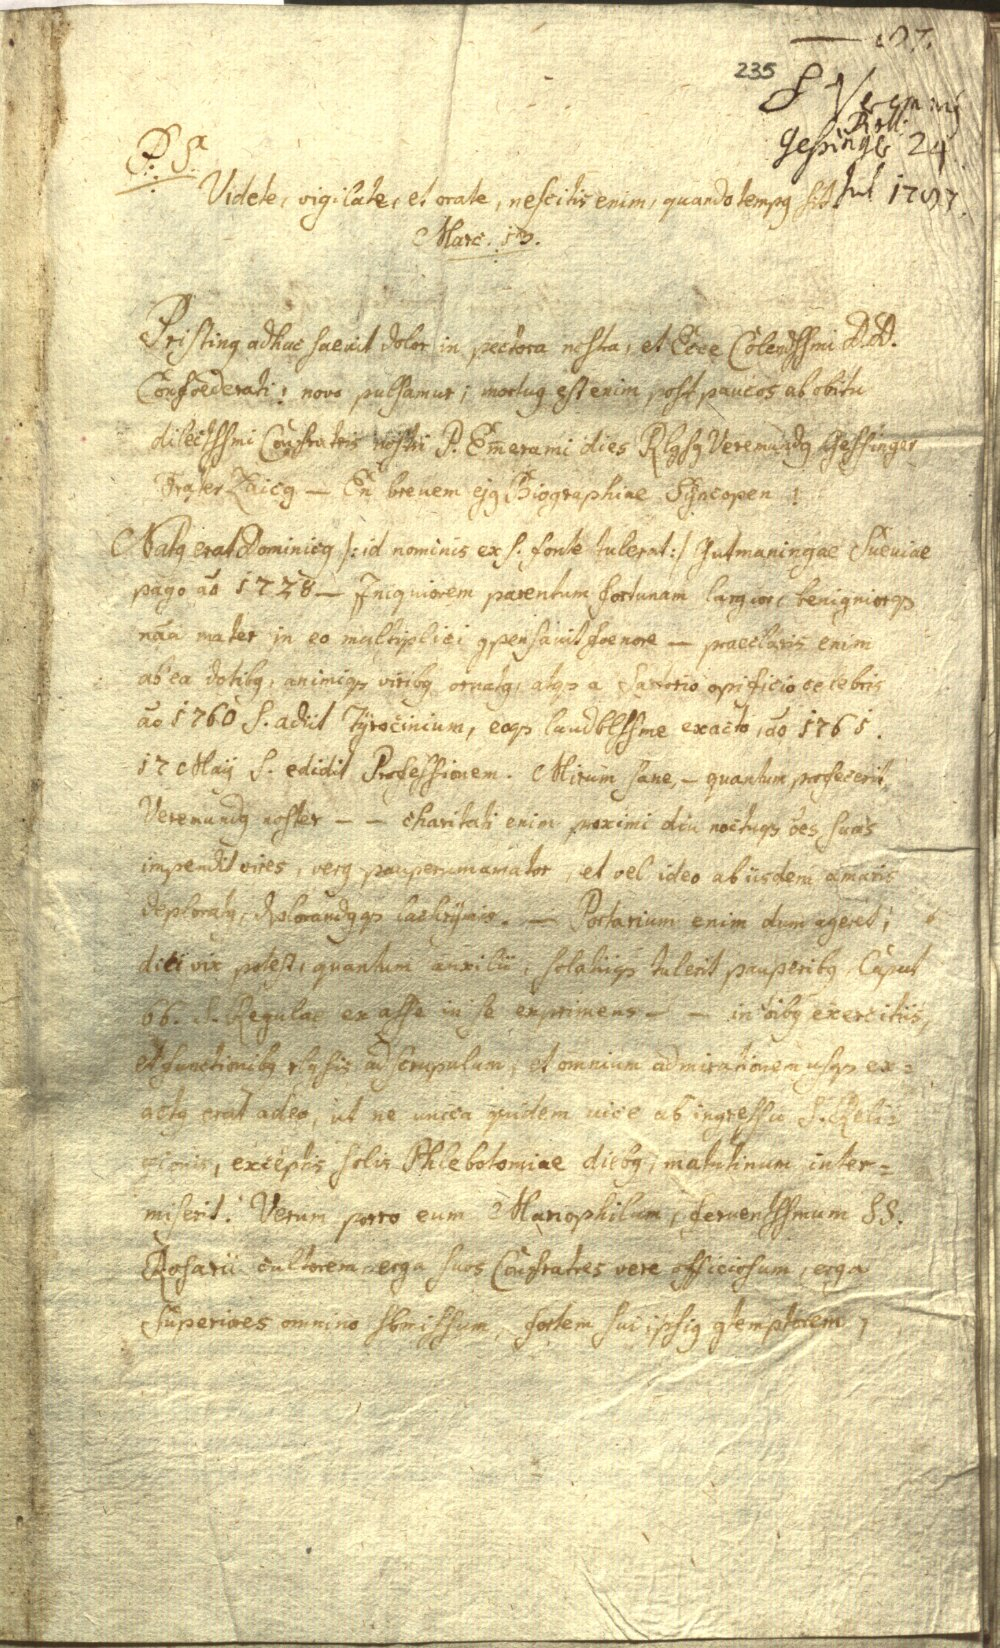 197.
235
F Veremund
Rott.
Gessinger 24
Jul 1797.
P. S.
Videte, vigilate, et orate, nescitis enim, quando tempq sit.
Marc. 13.
Pristinq adhuc saevit dolor in pectora nostra, et Ecce Colendssmi DD.
Confoederati! novo pulsamur; mortuq est enim, post paucos ab obitu
dilectssmi Confratris nostri P. Em̅erami dies Rlgsq Veremundq Gessinger
Frater Laicq — En brevem ejq Biographiae Syncopen!
Natq erat Dominicq /: id nominis ex S. fonte tulerat :/ Gutmaningae Sueviae
pago aõ 1728 — Iniquiorem parentum fortunam largior, benigniorqs
nãa mater in eo multiplici gpensavit foenore — praeclaris enim
ab ea dotibq, animiqs viribq ornatq, atqs a Sartorio opificio celebris
aõ 1760 S. adiit Tyrocinium, eoqs laudblssme exacto, aõ 1761.
17 Maij S. edidit Professionem. Mirum sane, — quantum profecerit
Veremundq noster — — charitati enim proximi diu noctuqs oẽs suas
impendit vires, verq pauperum amator, et vel ideo ab iisdem amaris
deploratq, deplorandqqs lachrymis. — Portarium enim dum ageret,
dici vix potest, quantum auxilii, solatiiqs tulerit pauperibq, Caput
66. S. Regulae ex asse in se exprimens — — in oĩbq exercitiis,
et functionibq rlgsis ad scrupulum, et omnium admirationem usqs ex=
actq erat adeo, ut ne unica quidem vice ab ingressu S. Reli=
gionis, exceptis solis Phlebotomiae diebq, matutinum inter=
miserit. Verum porro eum Mariophilum, ferventssmum SS.
Rosarii cultorem, erga suos Confratres vere officiosum, erga
Superiores omnino sbmissum, fortem sui ipsiq gtemptorem,